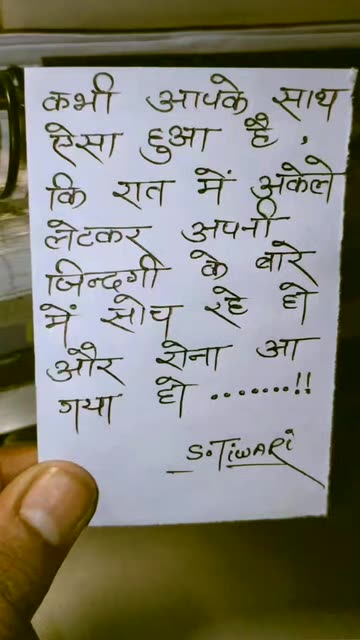 कभी आपके साथ
ऐसा हुआ है,
कि रात में अकेले
लेटकर अपनी
ज़िन्दगी के बारे
में सोच रहे हो
और रोना आ
गया हो .......!!
S.TIWARI